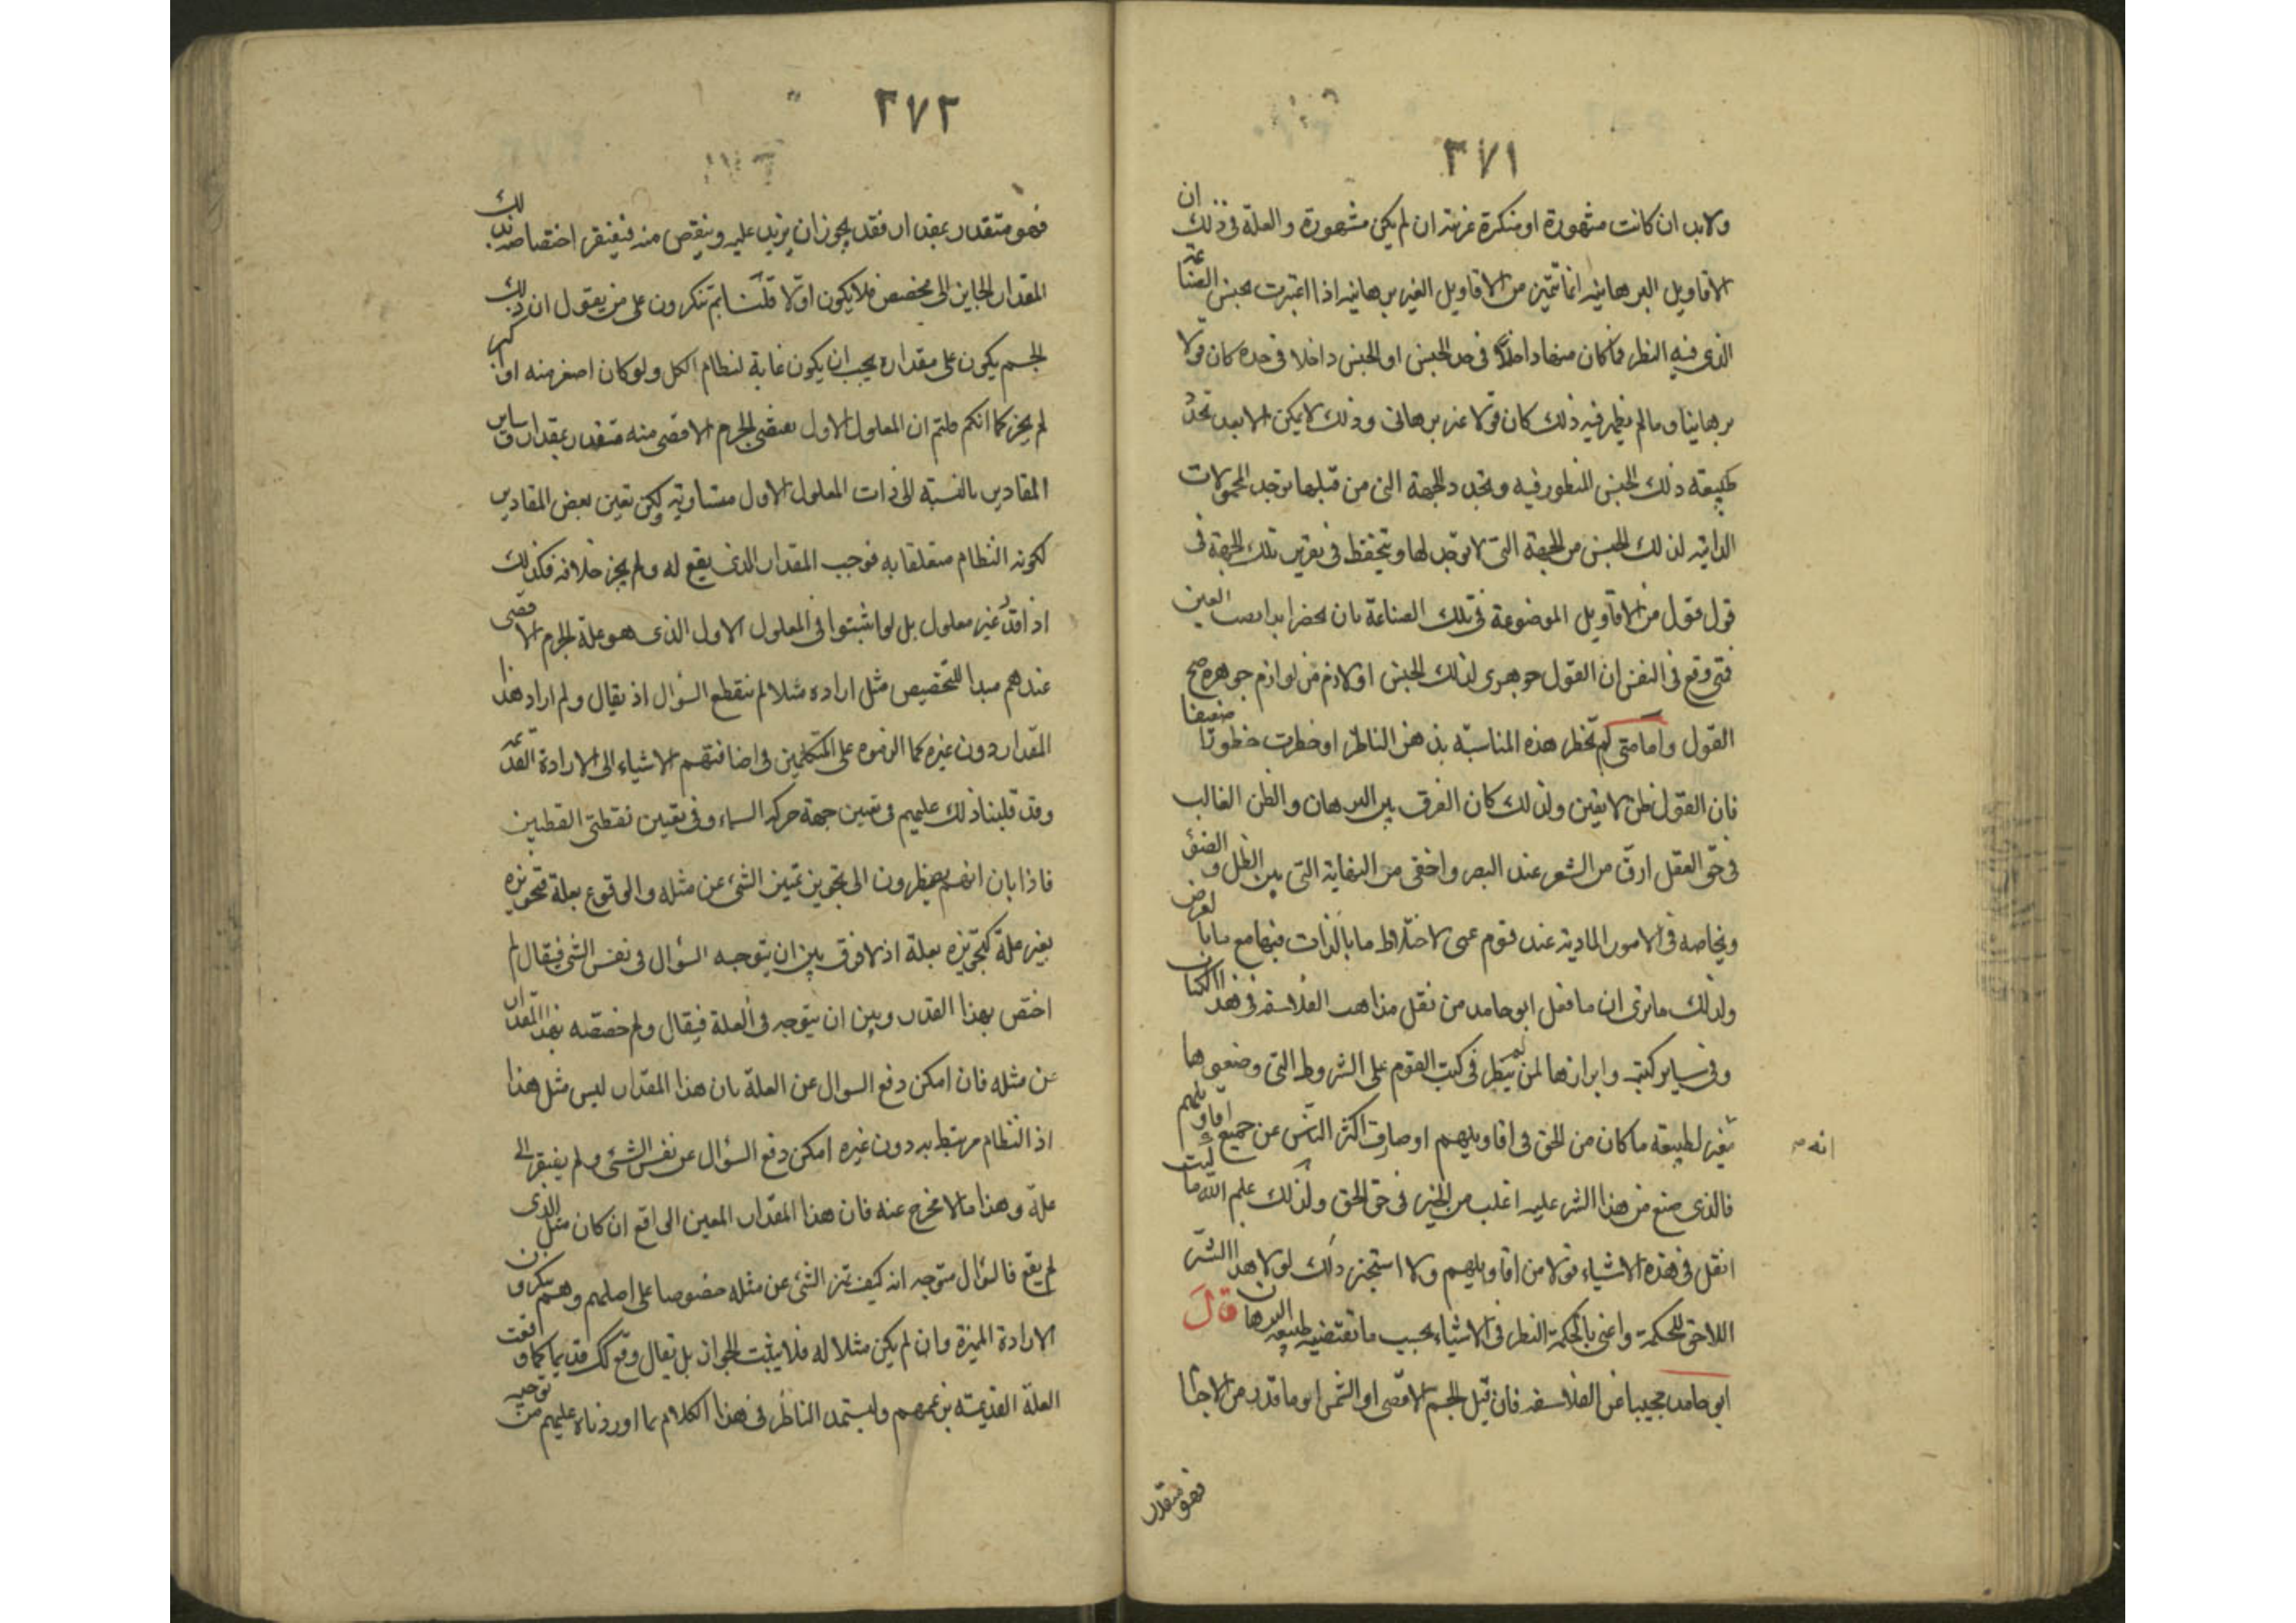 ٣٧١
ولابد ان كانت مشهورة او منكرة غريبة ان لم يكن مشهورة والعلة فى ذلك ان
الاقاويل البرهانيه انما تتميز من الاقاويل الغير برهانيه اذا اعتبرت بجنس الصناعة
الذى فيه النظر فما كان منها داخلا فى حد الجنس او الجنس داخلا فى حده كان قولا
برهانيا وما لم يظهر فيه ذلك كان قولا غير برهانى وذلك لا يمكن الا بعد تحديد
طبيعة ذلك الجنس المنظور فيه وتحدد الجهة التى من قبلها توجد المحمولات
الذاتيه لذلك الجنس من الجهة التى لا توجد لها ويتحفظ فى تقرير تلك الجهة فى
قول قول من الاقاويل الموضوعة فى تلك الصناعة بان يحضر ابدا نصب العين
فمتى وقع فى النفس ان القول جوهرى لذلك الجنس او لازم من لوازم جوهره صح
القول واما متى لم تخطر هذه المناسبة بذهن الناظر او خطرت خطورا ضعيفا
فان القول ظن لا يقين ولذلك كان الفرق بين البرهان والظن الغالب
فى حق العقل ادق من الشعر عند البصر واخفى من النهاية التى بين الظل والضوء
وبخاصه فى الامور المادية عند قوم عمى لاختلاط ما بالذات فيها مع ما بالعرض
ولذلك ما نرى ان ما فعل ابو حامد من نقل مذاهب الفلاسفه فى هذا الكتاب
وفى ساير كتبه وابرازها لمن لم ينظر فى كتب القوم على الشروط التى وضعوها
انه
مغير لطبيعة ما كان من الحق فى اقاويلهم او صارف اكثر الناس عن جميع اقاويلهم
فالذى صنع من هذا الشر عليه اغلب من الخير فى حق الحق ولذلك علم الله ما كنت
انقل فى هذه الاشياء قولا من اقاويلهم ولا استجيز ذلك لولا هذا الشر
اللاحق للحكمة واعنى بالحكمة النظر فى الاشياء بحسب ما تقتضيه طبيعة البرهان قال
ابو حامد مجيبا عن الفلاسفه فان قيل الجسم الاقصى او الشمس او ما قدر من الاجسام
فهو متقدر
٣٧٢
فهو متقدر بمقدار فقد يجوز ان يزيد عليه وينقص منه فيفتقر اختصاصه بذلك
المقدار الجايز الى مخصص فلا يكون اولا قلنا بم تنكرون على من يقول ان ذلك
الجسم يكون على مقدار يجب ان يكون غاية لنظام الكل ولو كان اصغر منه او اكبر
لم يجز كما انكم قلتم ان المعلول الاول يقتضى الجرم الاقصى منه متقدر بمقدار وساير
المقادير بالنسبة الى ذات المعلول الاول متساوية ولكن تعين بعض المقادير
لكونه النظام متعلقا به فوجب المقدار الذى يقع له ولم يجز خلافه فكذلك
اذا قدر غير معلول بل لو اثبتوا فى المعلول الاول الذى هو علة الجرم الاقصى
عندهم مبدا للتخصيص مثل اراده مثلا لم ينقطع السؤال اذ يقال ولم اراد هذا
المقدار دون غيره كما الزموه على المتكلمين فى اضافتهم الاشياء الى الارادة القديمة
وقد قلبنا ذلك عليهم فى تعين جهة حركة السماء وفى تعيين نقطتى القطبين
فاذا بان انهم يضطرون الى تجويز تميز الشئ عن مثله والوقوع بعلة فتجويزه
بغير علة كتجويزه بعلة اذ لا فرق بين ان يتوجه السؤال فى نفس الشئ فيقال لم
اختص بهذا القدر وبين ان يتوجه فى العلة فيقال ولم خصصه بهذا المقدار
عن مثله فان امكن دفع السوال عن العلة بان هذا المقدار ليس مثل هذا
اذ النظام مرتبط به دون غيره امكن دفع السؤال عن نفس الشئ ولم يفتقر الى
علة وهذا ما لا مخرج عنه فان هذا المقدار المعين الواقع ان كان مثل الذى
لم يقع فالسؤال متوجه انه كيف تميز الشئ عن مثله خصوصا على اصلهم وهم ينكرون
الارادة المميزة وان لم يكن مثلا له فلا يثبت الجواز بل يقال وقع كك قديما كما وقعت
العلة القديمة بزعمهم وليستمد الناظر فى هذا الكلام مما اوردناه عليهم من توجيه